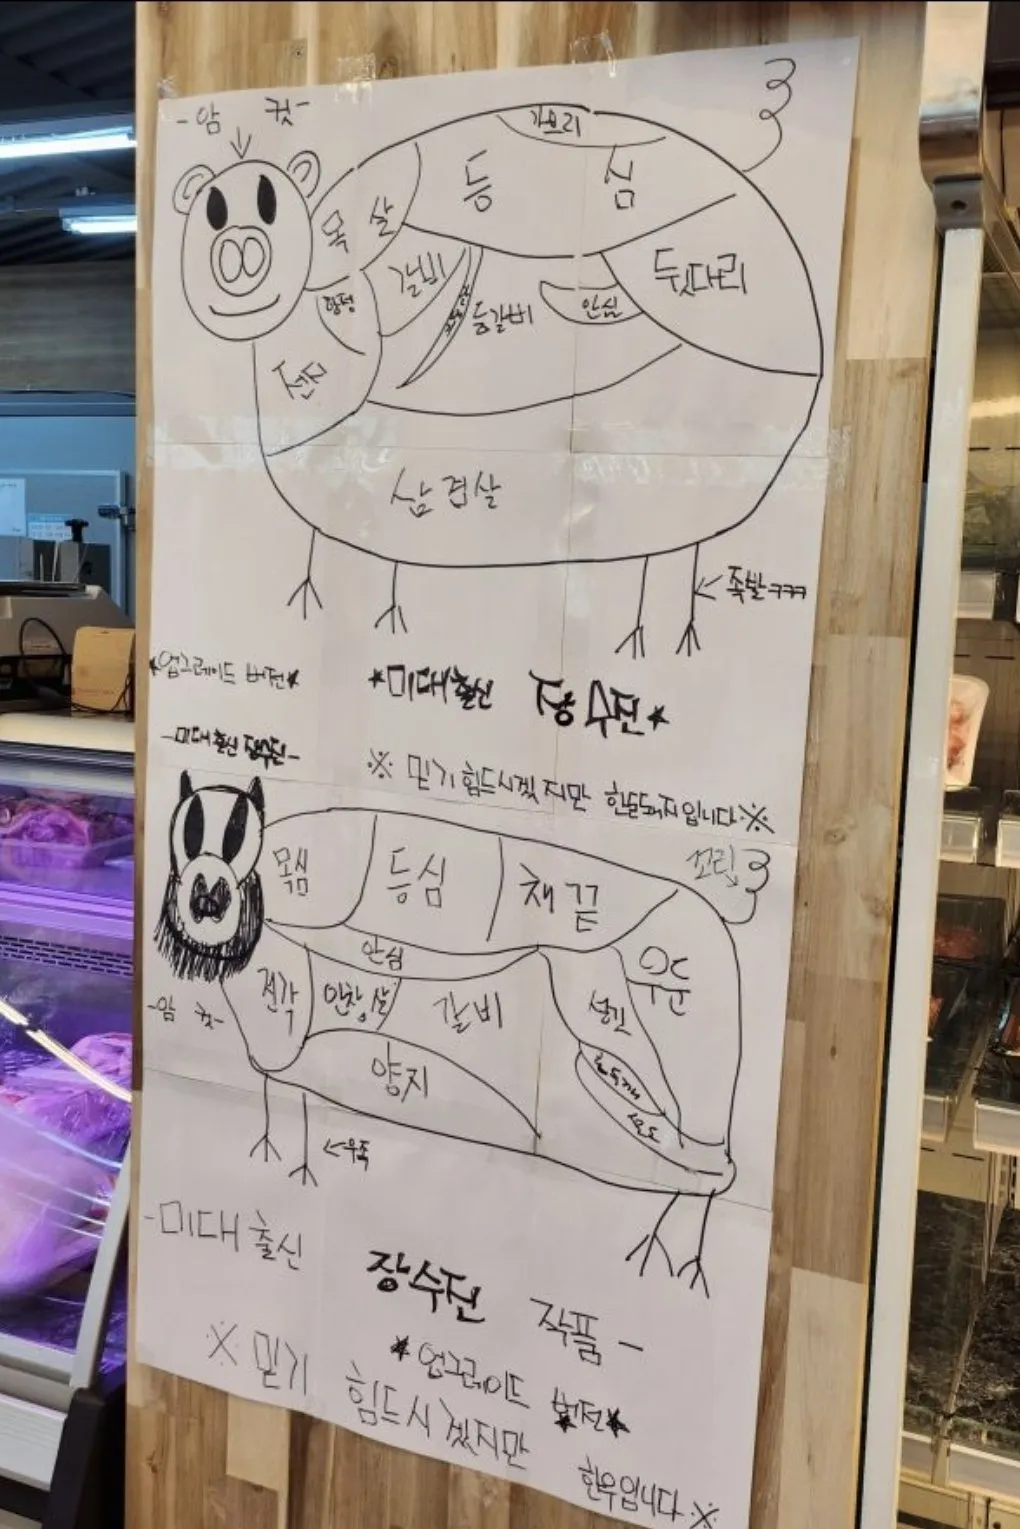 -암 컷-
가브리
등 심
목 살
갈비
항정
등갈비
안심
뒷다리
전지
삼겹살
족발ㅋㅋㅋ
★업그레이드 버전★
★미대출신 장수진★
-미대출신 장수진-
※ 믿기힘드시겠지만 한돈돼지입니다※
목심
등심
채끝
꼬리
안심
우둔
전각
안창살
갈비
설깃
양지
홍두깨
-암 컷-
우족
-미대출신
장수진 작품-
★업그레이드 버전★
※ 믿기 힘드시겠지만 한우입니다※